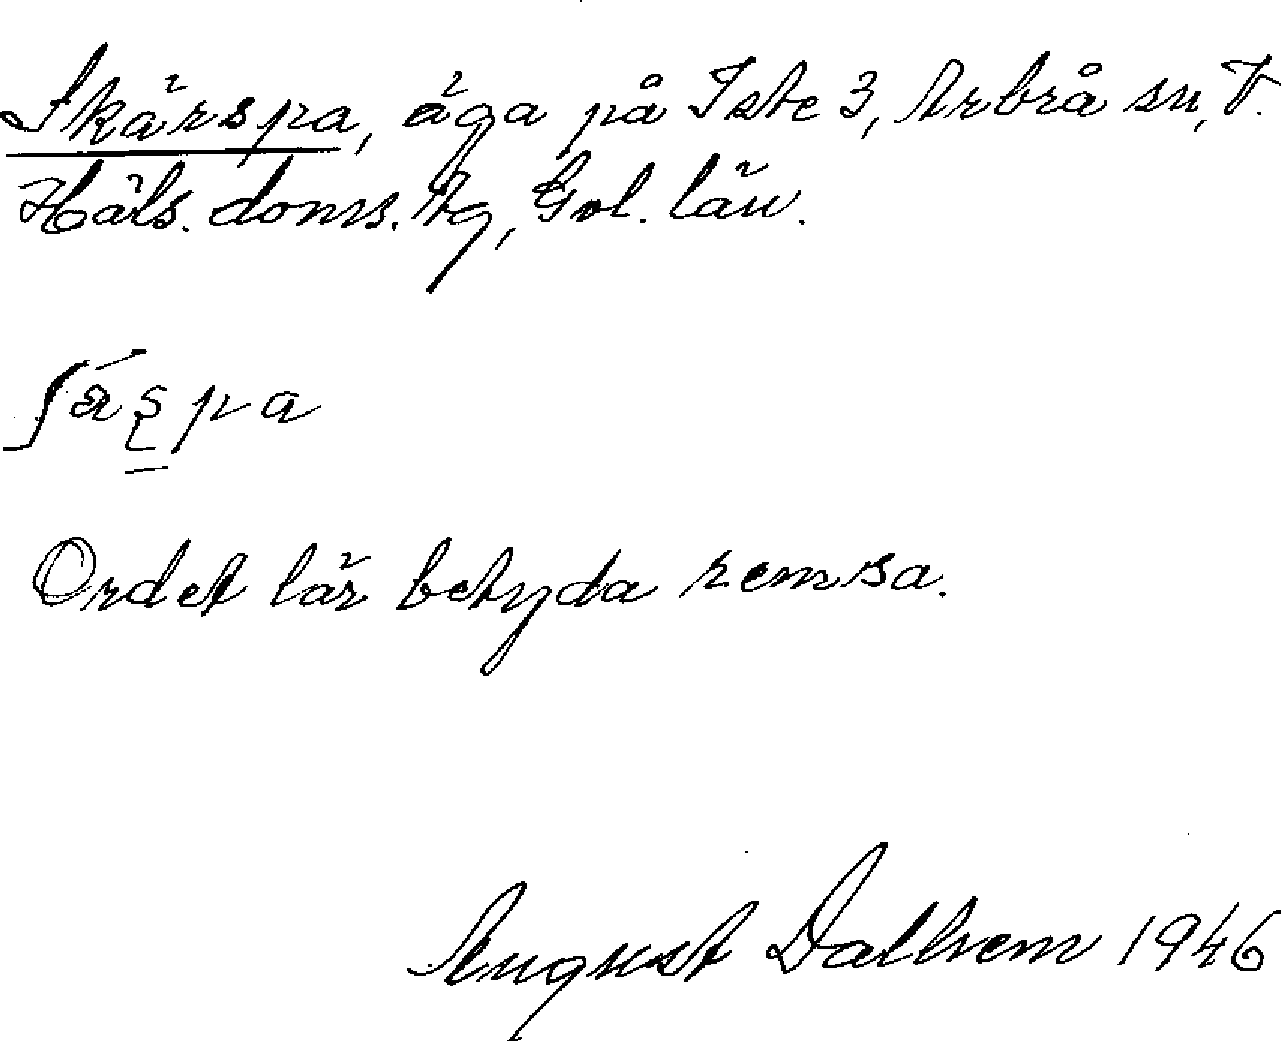 Skärspa, äga på Iste 3, Arbrå sn, V.
Häls. doms. hg, Gvl. län.
ʃäʂpa
Ordet lär betyda remsa.
August Dalhem 1946